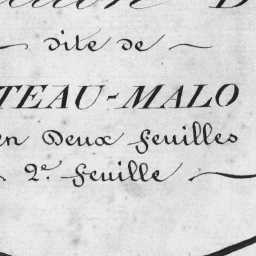 dite de
TEAU-MALO
en Deux feuilles
2e. feuille